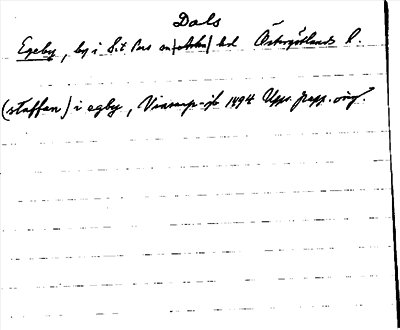 Dals
Egeby, by i S:t Pers sn hd Östergötlands l.
(staffan) i egby, Vinarp-jb 1494 Upps. papp. orig.